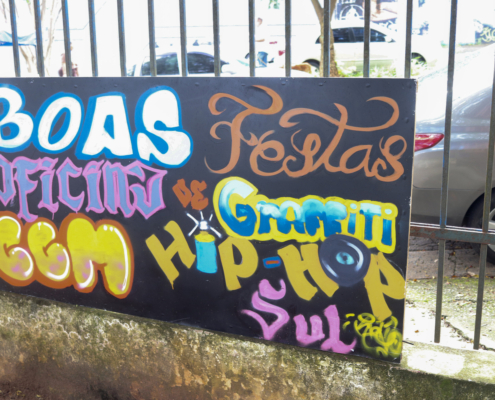 BOAS Festas
oficina DE Graffiti
CCM HiP-HOP
Sul